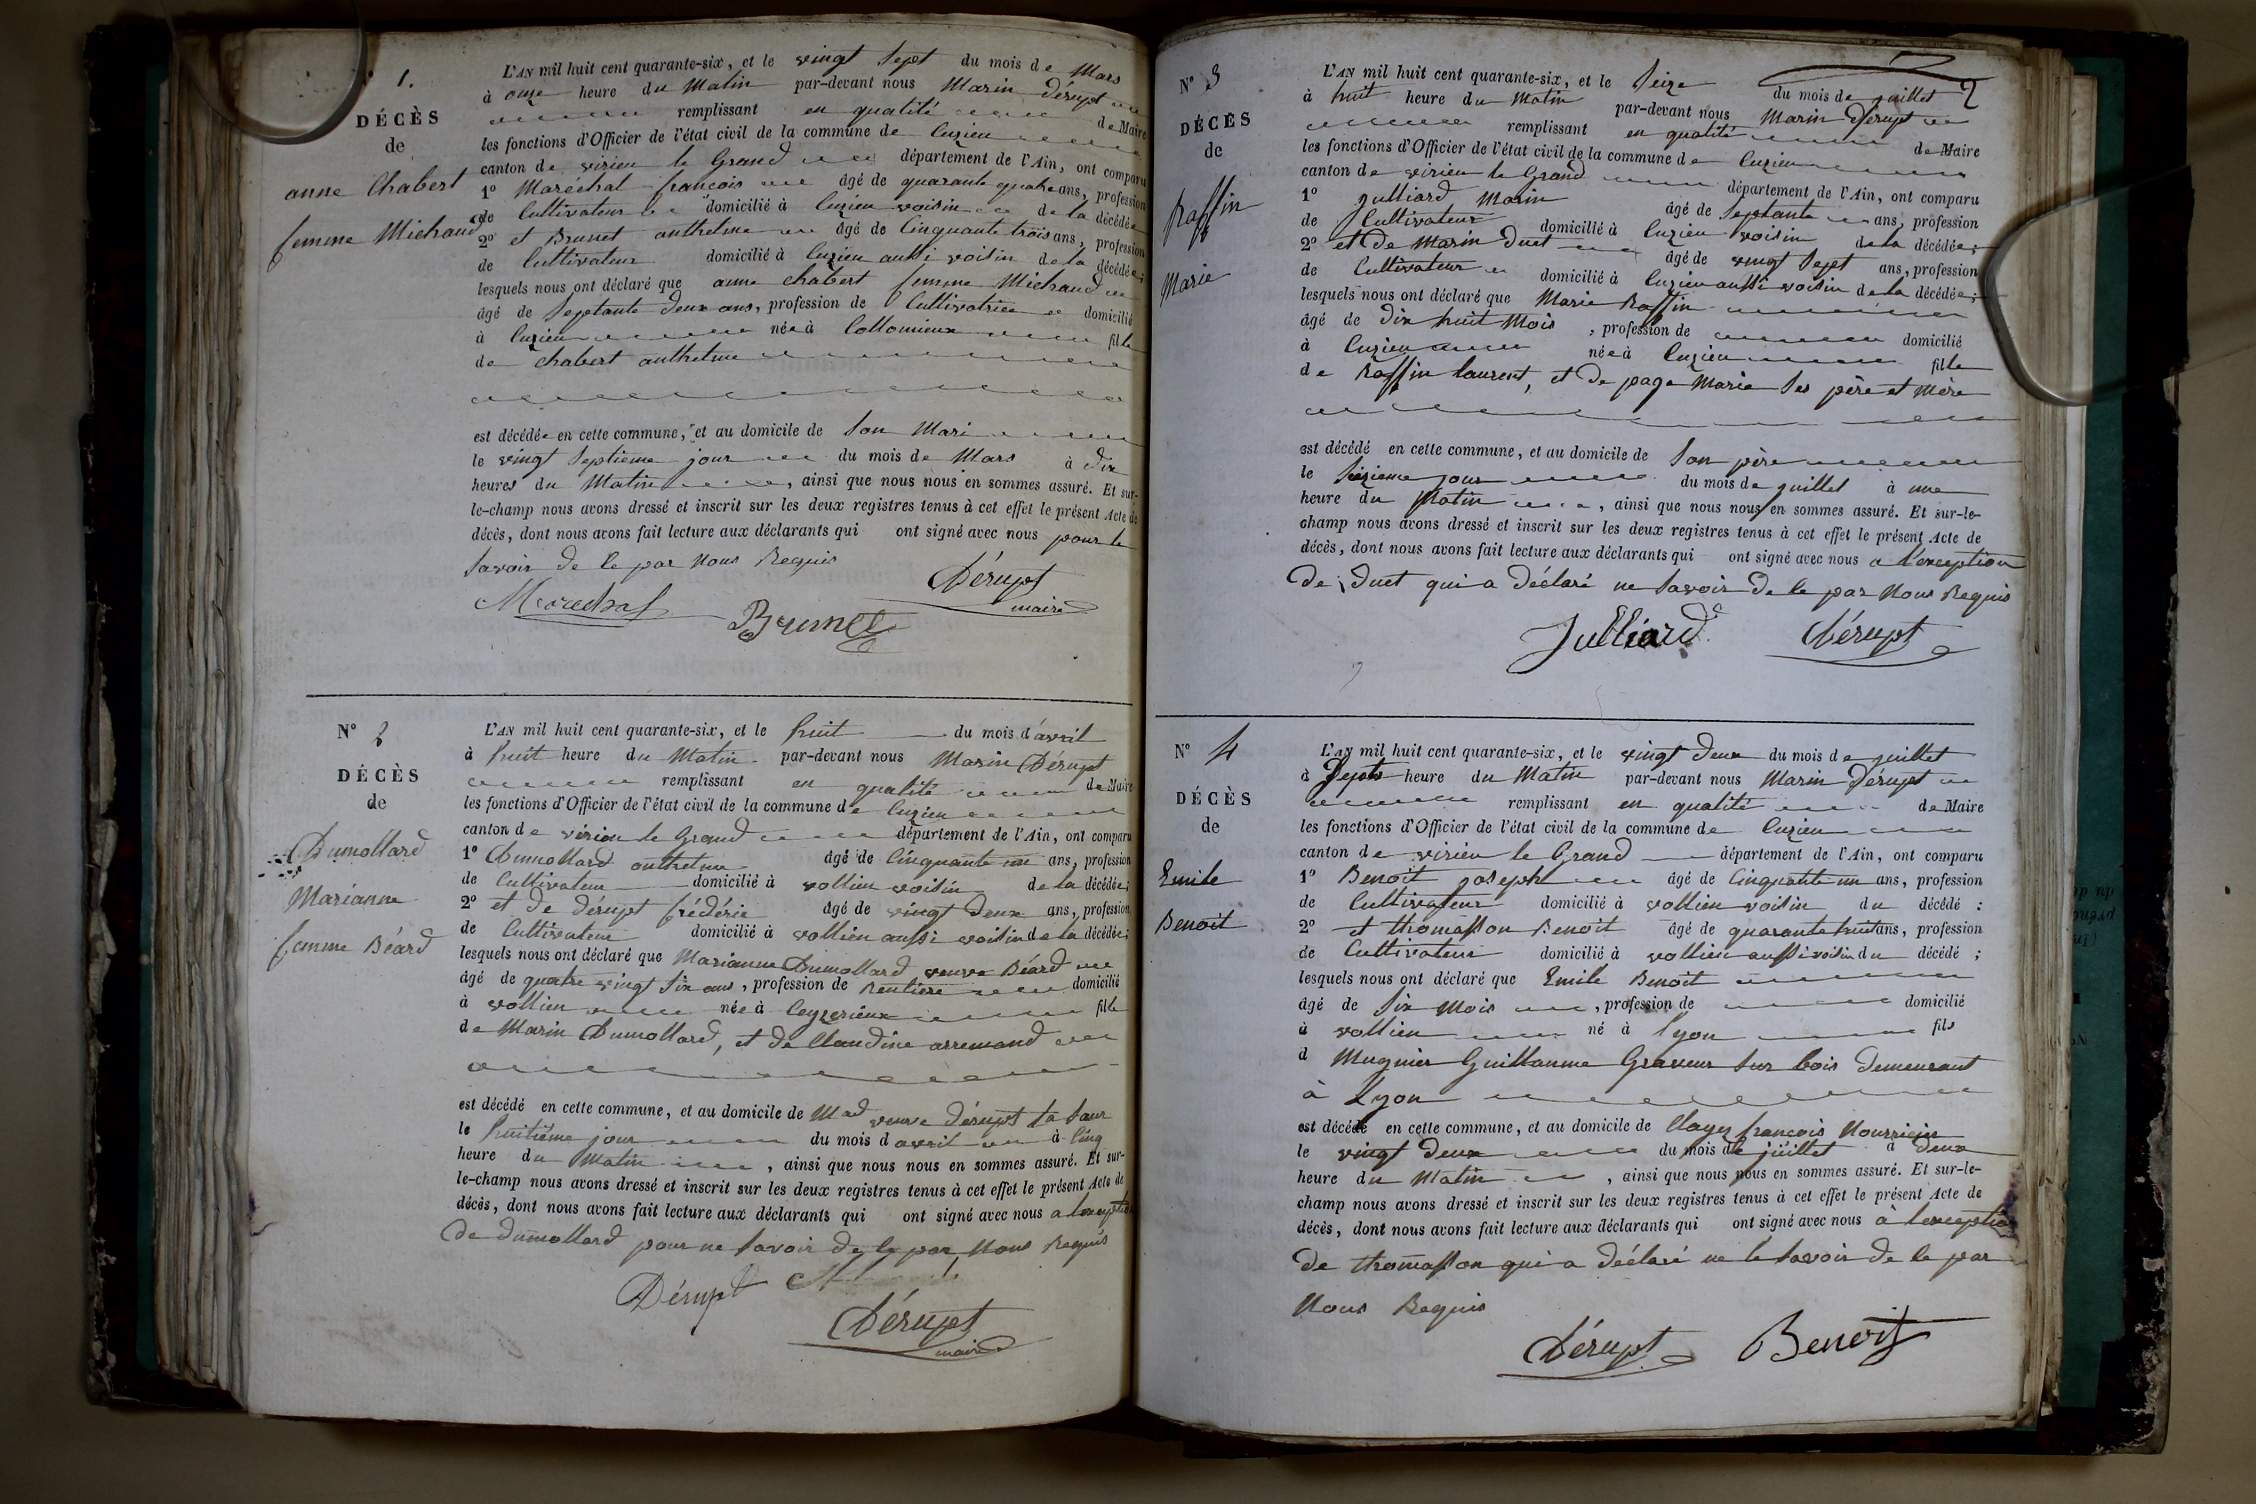 1.
DÉCÈS
de
anne Chabert
femme Michaud
L'AN mil huit cent quarante-six, et le vingt sept du mois de Mars
à onze heure du Matin par-devant nous Marin Dérupt
remplissant en qualité de Maire
les fonctions d'Officier de l'état civil de la commune de Cuzieu
canton de virieu le Grand département de l'Ain, ont comparu
1º Maréchal francois âgé de quarante quatre ans, profession
de Cultivateur domicilié à Cuzieu voisin de la décédée
2º et Brunet anthelme âgé de Cinquante trois ans, profession
de Cultivateur domicilié à Cuzieu aussi voisin de la décédée;
lesquels nous ont déclaré que anne chabert femme Michaud
âgé de Septante deux ans, profession de Cultivatrice domicilié
à Cuzieu née à Collomieux fille
de chabert anthelme
est décédée en cette commune, et au domicile de Son Mari
le vingt Septieme jour du mois de Mars à dix
heures du Matin, ainsi que nous nous en sommes assuré. Et sur-
le-champ nous avons dressé et inscrit sur les deux registres tenus à cet effet le présent Acte de
décès, dont nous avons fait lecture aux déclarants qui ont signé avec nous pour le
Savoir de le par Nous Requis
Marechal Brunet Dérupt
maire
Nº 2
DÉCÈS
de
Dumollard
Marianne
femme Béard
L'AN mil huit cent quarante-six, et le huit du mois d'avril
à huit heure du Matin par-devant nous Marin Dérupt
remplissant en qualité de Maire
les fonctions d'Officier de l'état civil de la commune de Cuzieu
canton de virieu le Grand département de l'Ain, ont comparu
1º Dumollard anthelme âgé de Cinquante un ans, profession
de Cultivateur domicilié à vollien voisin de la décédée;
2º et de dérupt frédéric âgé de vingt deux ans, profession
de Cultivateur domicilié à vollien aussi voisin de la décédée;
lesquels nous ont déclaré que Marianne Dumollard veuve Béard
âgé de quatre vingt Six ans, profession de Rentiere domicilié
à vollien née à Ceyzerieux fille
de Marin Dumollard, et de Claudine arremand
est décédé en cette commune, et au domicile de Mad veuve Dérupt Sa Sœur
le huitième jour du mois d'avril à Cinq
heure du Matin, ainsi que nous nous en sommes assuré. Et sur-
le-champ nous avons dressé et inscrit sur les deux registres tenus à cet effet le présent Acte de
décès, dont nous avons fait lecture aux déclarants qui ont signé avec nous a l'exception
de dumollard pour ne Savoir de le par Nous Requis
Dérupt
Dérupt
maire
2
Nº 3
DÉCÈS
de
Raffin
Marie
L'AN mil huit cent quarante-six, et le Seize du mois de juillet
à huit heure du Matin par-devant nous Marin Dérupt
remplissant en qualité de Maire
les fonctions d'Officier de l'état civil de la commune de Cuzieu
canton de virieu le Grand département de l'Ain, ont comparu
1º julliard Marin âgé de Septante ans, profession
de Cultivateur domicilié à Cuzieu voisin de la décédée;
2º et de Marin Duet âgé de vingt Sept ans, profession
de Cultivateur domicilié à Cuzieu aussi voisin de la décédée;
lesquels nous ont déclaré que Marie Raffin
âgé de Dix huit Mois, profession de domicilié
à Cuzieu née à Cuzieu fille
de Raffin laurent, et de page Marie Ses père et Mère
est décédé en cette commune, et au domicile de Son père
le Seizieme jour du mois de juillet à une
heure du Matin, ainsi que nous nous en sommes assuré. Et sur-le-
champ nous avons dressé et inscrit sur les deux registres tenus à cet effet le présent Acte de
décès, dont nous avons fait lecture aux déclarants qui ont signé avec nous a l'exception
de Duet qui a déclaré ne Savoir de le par Nous Requis
Julliard Dérupt
Nº 4
DÉCÈS
de
Emile
Benoit
L'AN mil huit cent quarante-six, et le vingt deux du mois de juillet
à Sept heure du Matin par-devant nous Marin Dérupt
remplissant en qualité de Maire
les fonctions d'Officier de l'état civil de la commune de Cuzieu
canton de virieu le Grand département de l'Ain, ont comparu
1º Benoit joseph âgé de Cinquante un ans, profession
de Cultivateur domicilié à vollien voisin du décédé:
2º et thomasson Benoit âgé de quarante huit ans, profession
de Cultivateur domicilié à vollien aussi voisin du décédé;
lesquels nous ont déclaré que Emile Benoit
âgé de Six Mois, profession de domicilié
à vollien né à Lyon fils
d Mugnier Guillaume Graveur Sur bois Demeurant
à Lyon
est décédé en cette commune, et au domicile de Clayez francois Nourricier
le vingt Deux du mois de juillet à Deux
heure du Matin, ainsi que nous nous en sommes assuré. Et sur-le-
champ nous avons dressé et inscrit sur les deux registres tenus à cet effet le présent Acte de
décès, dont nous avons fait lecture aux déclarants qui ont signé avec nous à l'exception
de thomasson qui a déclaré ne le Savoir de le par
Nous Requis
Dérupt Benoit